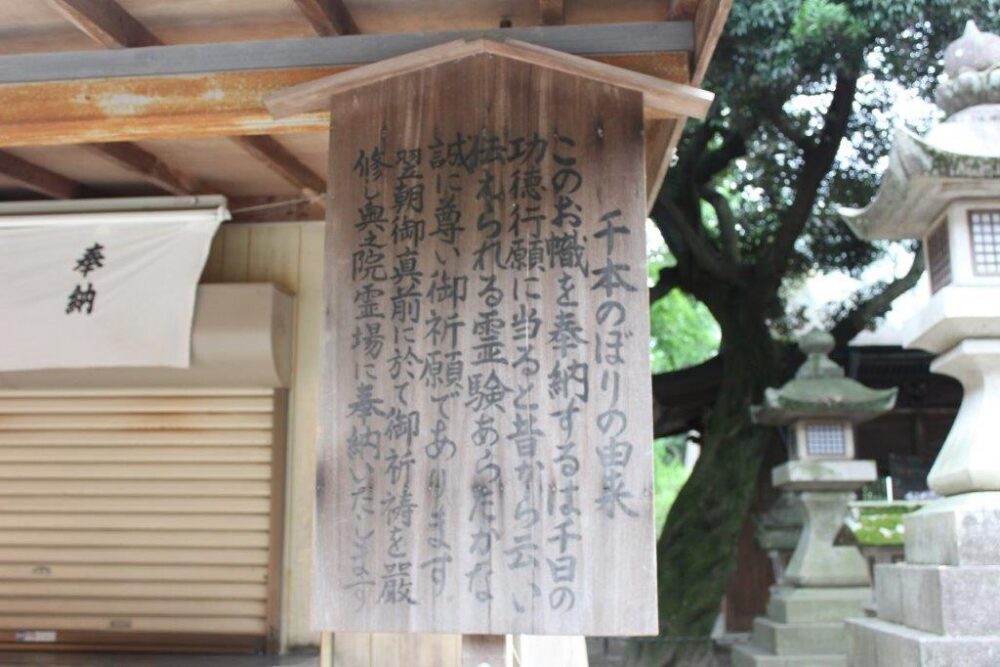 千本のぼりの由来
このお幟を奉納するは千日の
功徳行願に当ると昔から云い
伝えられる霊験あらたかな
誠に尊い御祈願であります
翌朝御真前に於て御祈祷を厳
修し奥之院霊場に奉納いたします
奉納